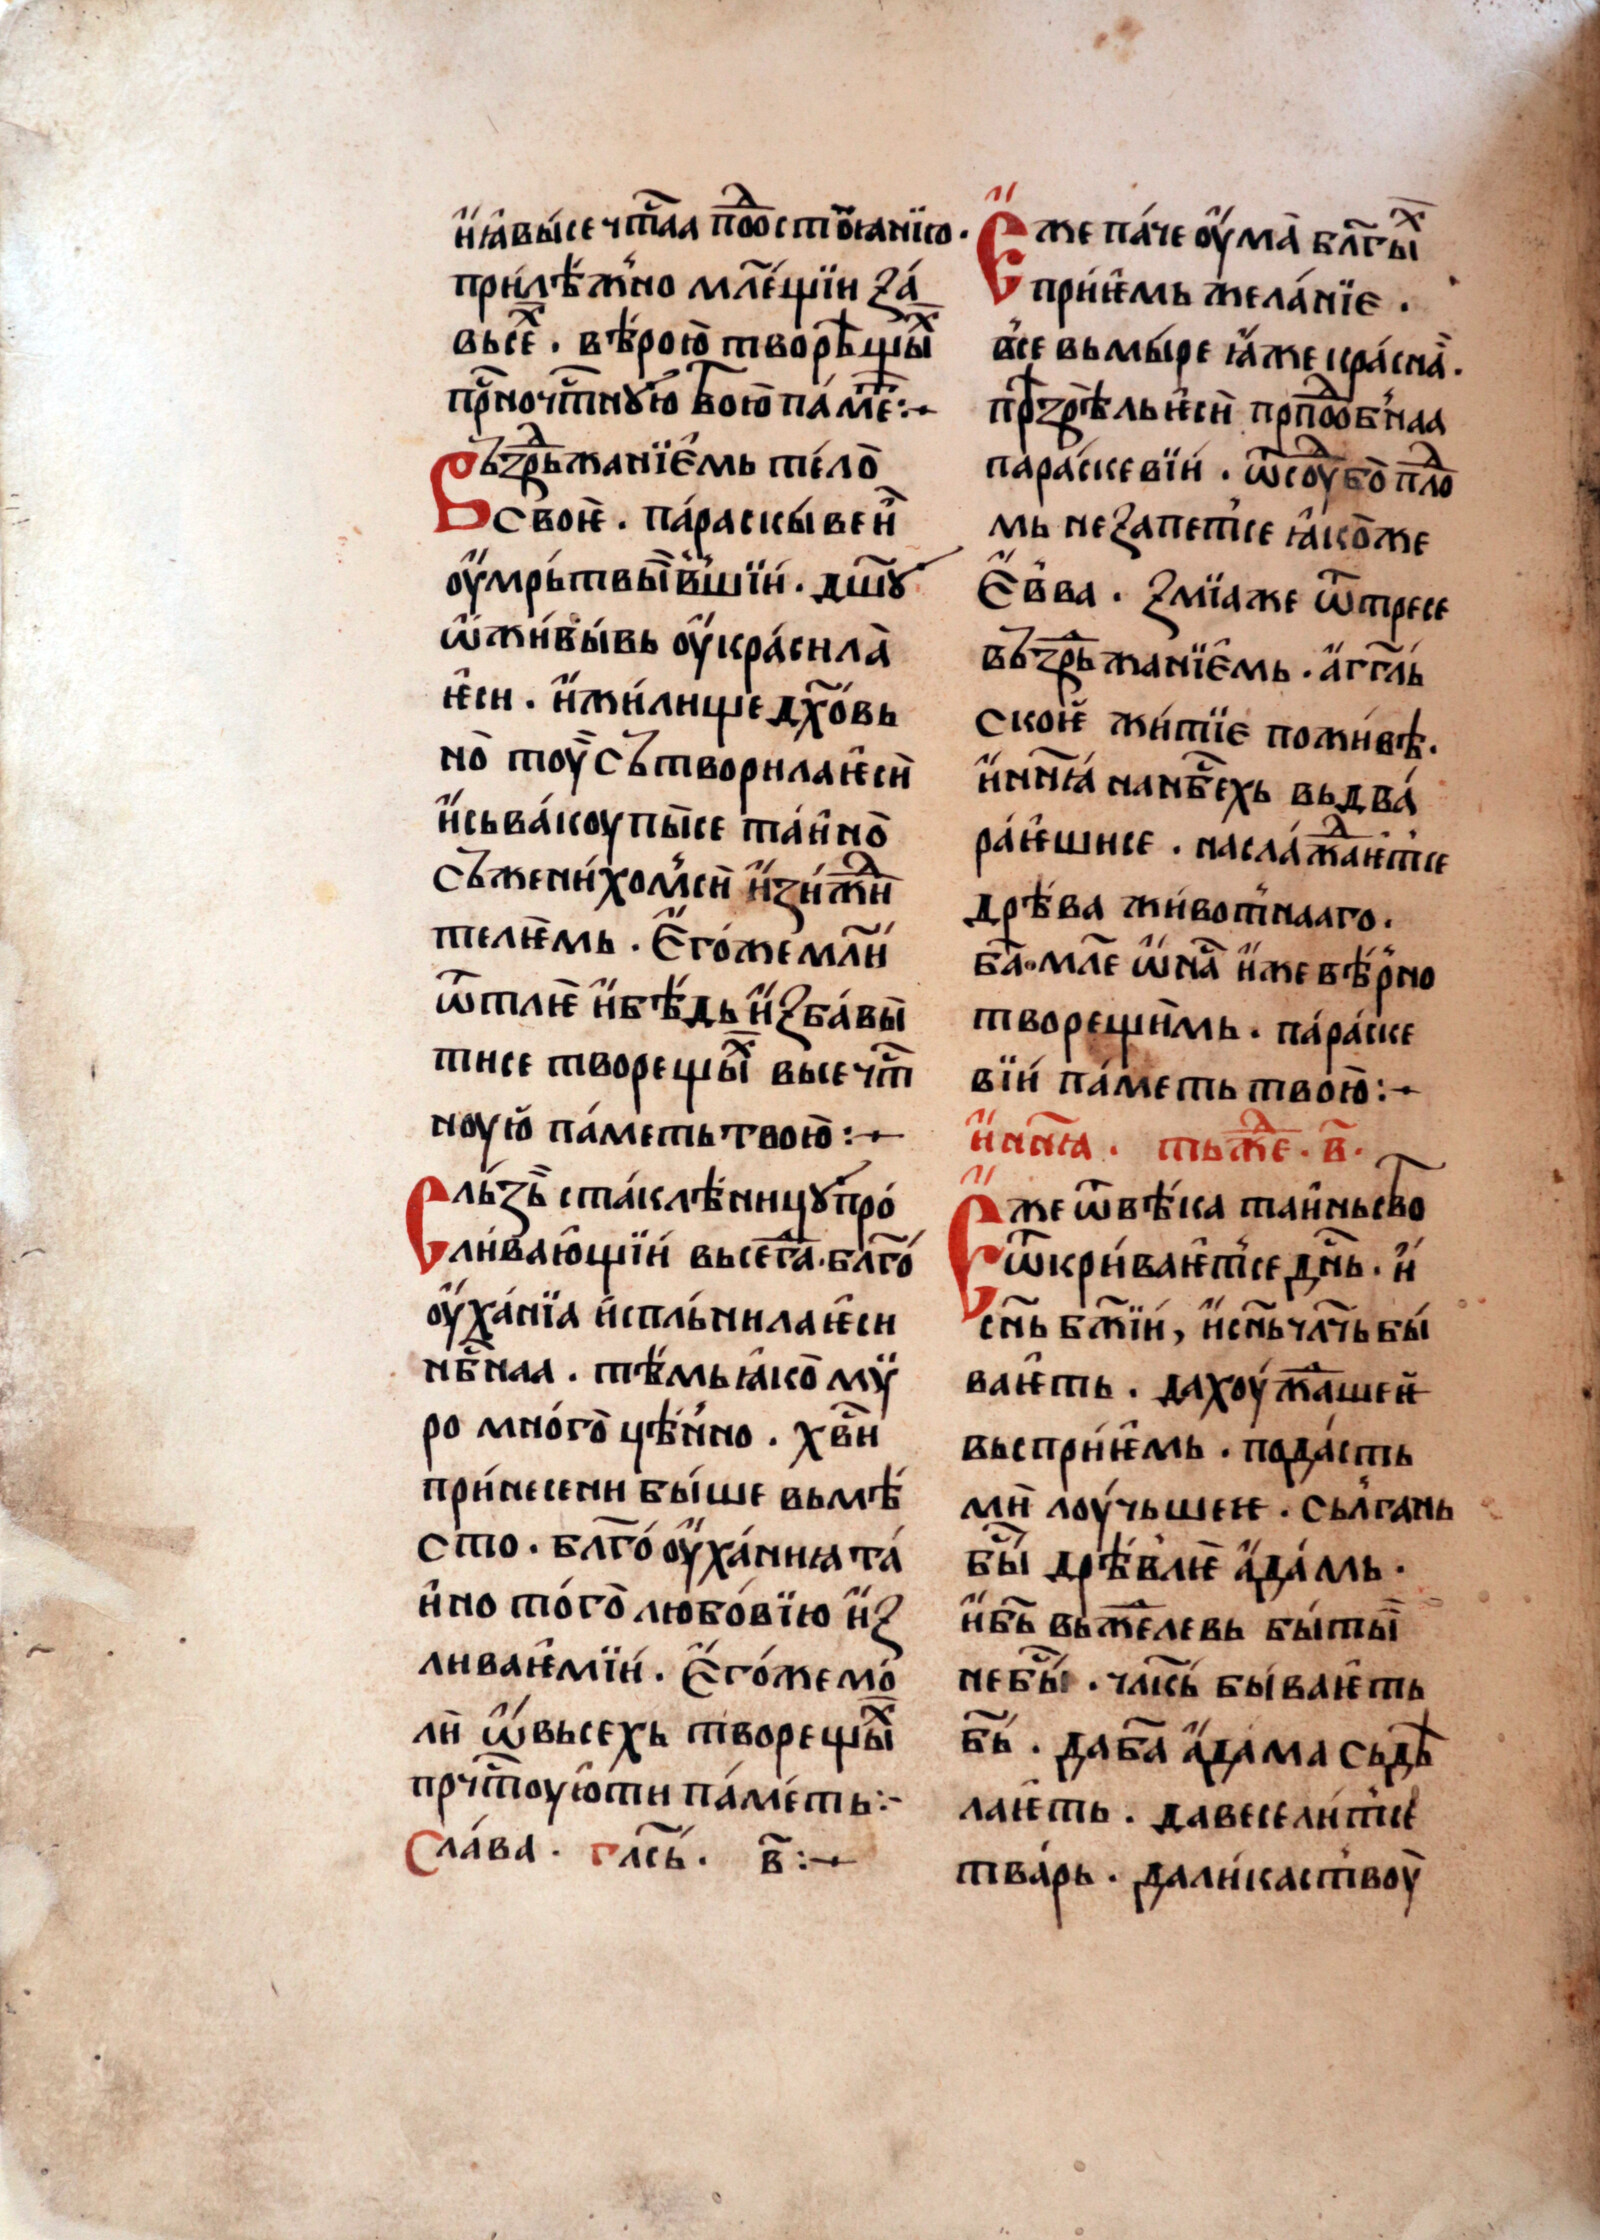 и҆ꙗ҆вы́се чⷭ҇таа пⷪ҇достоꙗ́нїю .
прилѣ́жно млⷭ҇ещїи за́
въсе́ⷯ . вѣ́рою̀ творѣщыⷯ
прⷭ҇ночⷭ҇тнꙋю̀ твою̀ па́меⷮ :~
Въздрьжанїе́мь тѣ́ло
свое . па́раскы́веи
ᲂу҆мрь́твыв́шїи . дш҃ꙋ
ѡ҆жи́вы́вь ᲂу҆кра́сила̀
ѥ҆си . и҆жи́лище дх҃о́вь
но тоу съ́творилаѥси
и҆сьва́коупы́се таи́но
съ́жени́хомⷭ҇си и҆зи́жⷣи
телѥмь . Є҆го́же мл҃и
ѿтлѥ и҆бѣ́дь и҆зба́вы
тисе творещыⷯ высечⷭ҇т
ноую̀ па́меть твою̀ :~
Сль́зь ста́клѣницꙋ про́
ли́ваю́щїи вьсегⷣа . бл҃го́
ᲂу҆ха́нїа и҆сплъ́нила ѥ҆си
нбⷭ҇наа . тѣ́мь ꙗ҆ко мѵ̈
ро мно́го цѣ́нно . хв҃и
при́несени бы́ше вьмѣ́
сто . бл҃го́ᲂу҆ха́ниꙗ та́
и́но то́го любо́вїю и҆з
ливаѥ́мїи . Є҆го́же мо́
ли ѡ҆вьсехь творещыⷯ
прчⷭ҇тоую́ти па́меть :~
Сла́ва . гла́сь . в҃ :~
Є҆же па́че ᲂу҆ма̀ бл҃гы́ⷯ
прии́ѥмь жела́нїе .
в́се вьмы́ре ꙗ҆́же кра́сна̀ .
прѣзрѣ́ль ѥси прпⷣобнаа
пара́скевїи . ѿсꙋⷣбо плⷪ҇до
мь незапет́се ꙗ҆ко́же
Є҆́вва . змїа́же ѿтресе
въздрьжанїе́мь . а҆́гг҃ль
ской жи́тїе пожи́вѣ .
и҆нн҃ꙗ нанб҃сехь вьдва́
ра́ѥшисе . насла́жⷣаѥтⷭ҇се
дрѣ́ва живо́тнааго .
ба҃ . мл҃е ѡ҆на҃ и҆же вѣ́рно
творещи́мь . па́ра́ске
вїи па́меть твою̀ :~
и҆нн҃ꙗ . тьжⷣе . в҃ .
Є҆же ѿвѣ́ка таи́ньство
ѿкри́ваѥтⷭ҇се дн҃ь . и҆
сн҃ь бж҃їи , и҆сн҃ь чл҃чь бы́
ваѥть . дахоу́жⷣашеѥ
вьспри́ѥмь . пода́сть
ми лоу́чьшеѥ . сьлга́нь
бы́ дрѣ́влѥ а҆да́мь .
и҆бь҃ вьжⷣелевь бы́ты
небы́ . чл҃кь бы́ваѥть
бь҃ . даба҃ а҆да́ма сьдѣ
лаѥть . давесели́тⷭ҇се
тва́рь . дали́каствоу